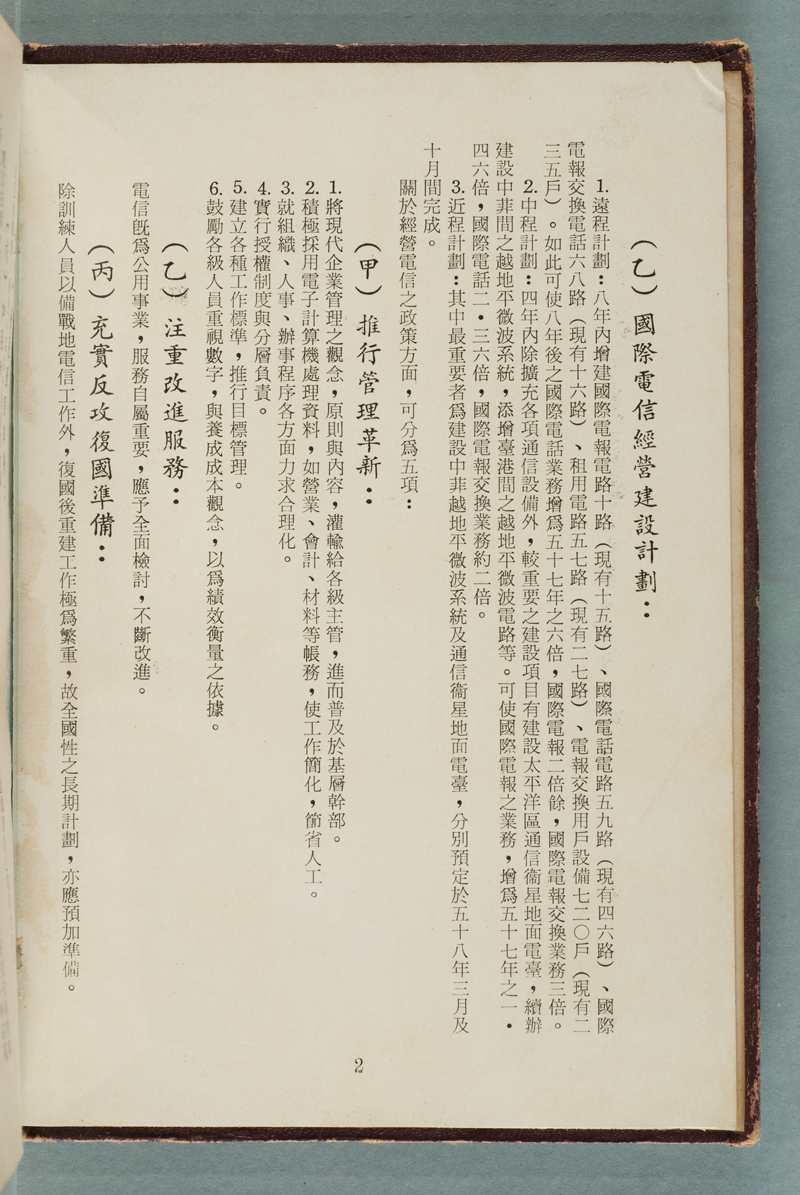 （乙）國際電信經營建設計劃：
1.遠程計劃：八年內增建國際電報電路十路（現有十五路）、國際電話電路五九路（現有四六路）、國際
電報交換電話六八路（現有十六路）、租用電路五七路（現有二七路）、電報交換用戶設備七二〇戶（現有二
三五戶）。如此可使八年後之國際電話業務增爲五十七年之六倍，國際電報二倍餘，國際電報交換業務三倍。
2.中程計劃：四年內除擴充各項通信設備外，較重要之建設項目有建設太平洋區通信衞星地面電臺，續辦
建設中菲間之越地平微波系統，添增臺港間之越地平微波電路等。可使國際電報之業務，增爲五十七年之一・
四六倍，國際電話二・三六倍，國際電報交換業務約二倍。
3.近程計劃：其中最重要者爲建設中菲越地平微波系統及通信衞星地面電臺，分別預定於五十八年三月及
十月間完成。
關於經營電信之政策方面，可分爲五項：
（甲）推行管理革新：
1.將現代企業管理之觀念，原則與內容，灌輸給各級主管，進而普及於基層幹部。
2.積極採用電子計算機處理資料，如營業、會計、材料等帳務，使工作簡化，節省人工。
3.就組織、人事、辦事程序各方面力求合理化。
4.實行授權制度與分層負責。
5.建立各種工作標準，推行目標管理。
6.鼓勵各級人員重視數字，與養成成本觀念，以爲績效衡量之依據。
（乙）注重改進服務：
電信旣爲公用事業，服務自屬重要，應予全面檢討，不斷改進。
（丙）充實反攻復國準備：
除訓練人員以備戰地電信工作外，復國後重建工作極爲繁重，故全國性之長期計劃，亦應預加準備。
2